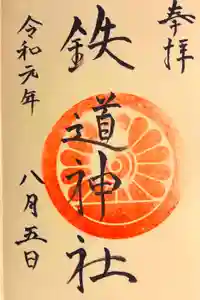 奉拝
鉄道神社
令和元年
八月五日